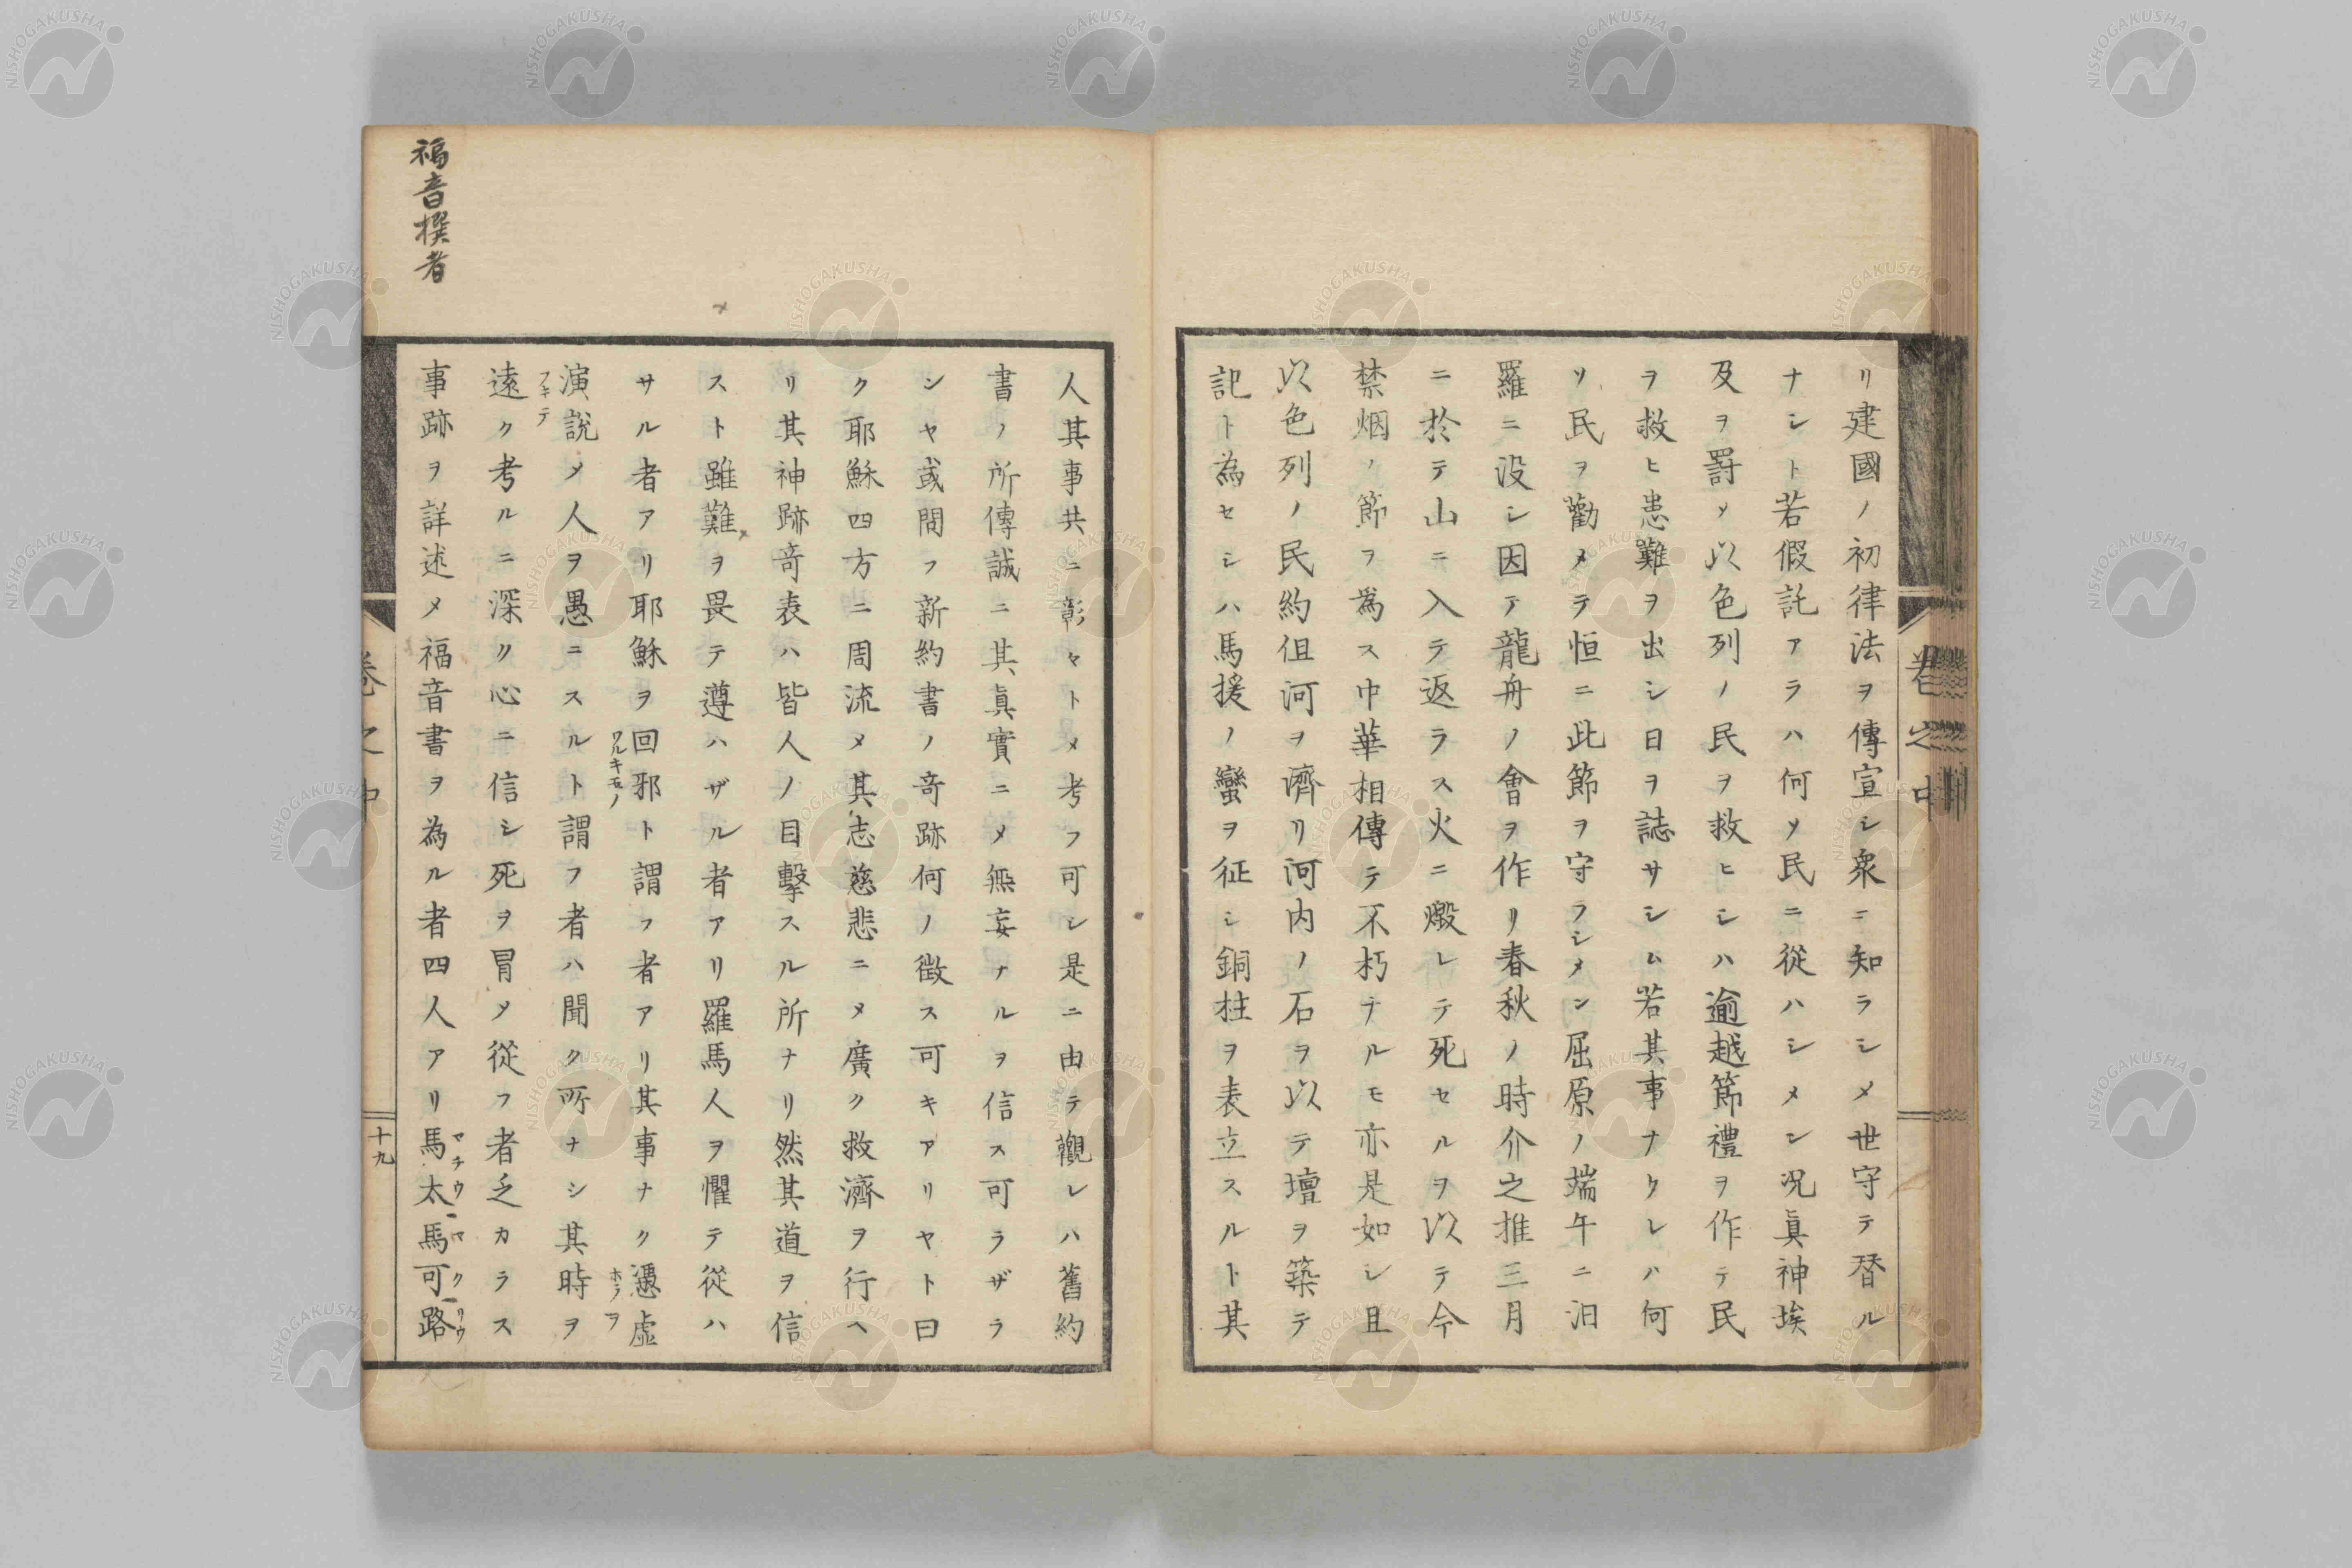 リ建國ノ初律法ヲ傳宣シ衆ニ知ラシメ世守テ替ル
ナシト若假託アラハ何ソ民ニ從ハシメン况眞神埃
及ヲ罸メ以色列ノ民ヲ救ヒシハ逾越節禮ヲ作テ民
ヲ救ヒ患難ヲ出シ日ヲ誌サシム若其事ナクレハ何
ソ民ヲ勸メテ恒ニ此節ヲ守ラシメン屈原ノ端午ニ汨
羅ニ没シ因テ龍舟ノ會ヲ作リ春秋ノ時介之推三月
ニ於テ山ニ入テ返ラス火ニ燬レテ死セルヲ以テ今
禁烟ノ節ヲ爲ス中華相傳テ不朽ナルモ亦是如シ且
以色列ノ民約但河ヲ濟リ河内ノ石ヲ以テ壇ヲ築テ
記ト為セシハ馬援ノ蠻ヲ征シ銅柱ヲ表立スルト其
卷之中
人其事共ニ彰々トメ考フ可シ是ニ由テ觀レハ舊約
書ノ所傳誠ニ其眞實ニメ無妄ナルヲ信ス可ラザラ
ンヤ或問フ新約書ノ竒跡何ノ徴ス可キアリヤト曰
ク耶穌四方ニ周流メ其志慈悲ニメ廣ク救濟ヲ行ヘ
リ其神跡竒表ハ皆人ノ目擊スル所ナリ然其道ヲ信
スト雖難ヲ畏テ遵ハザル者アリ羅馬人ヲ懼テ從ハ
サル者アリ耶穌ヲ回邪ト謂フ者アリ其事ナク憑虚
ワルキモノ
演說メ人ヲ愚ニスルト謂フ者ハ聞ク所ナシ其時ヲ
遠ク考ルニ深ク心ニ信シ死ヲ冒メ從フ者乏カラス
事跡ヲ詳述メ福音書ヲ為ル者四人アリ馬太馬可路
マチウ マクリウ
福音撰者
卷之中
十九
NISHOGAKUSHA